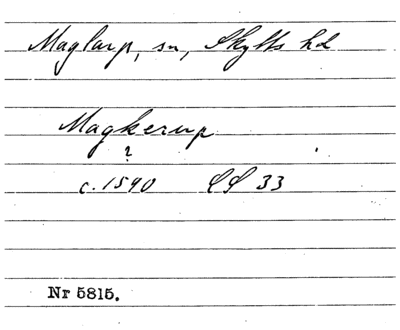 Maglarp, sn, Skytts hd
Magkerup
?
c. 1590 LL 33
Nr 5815.